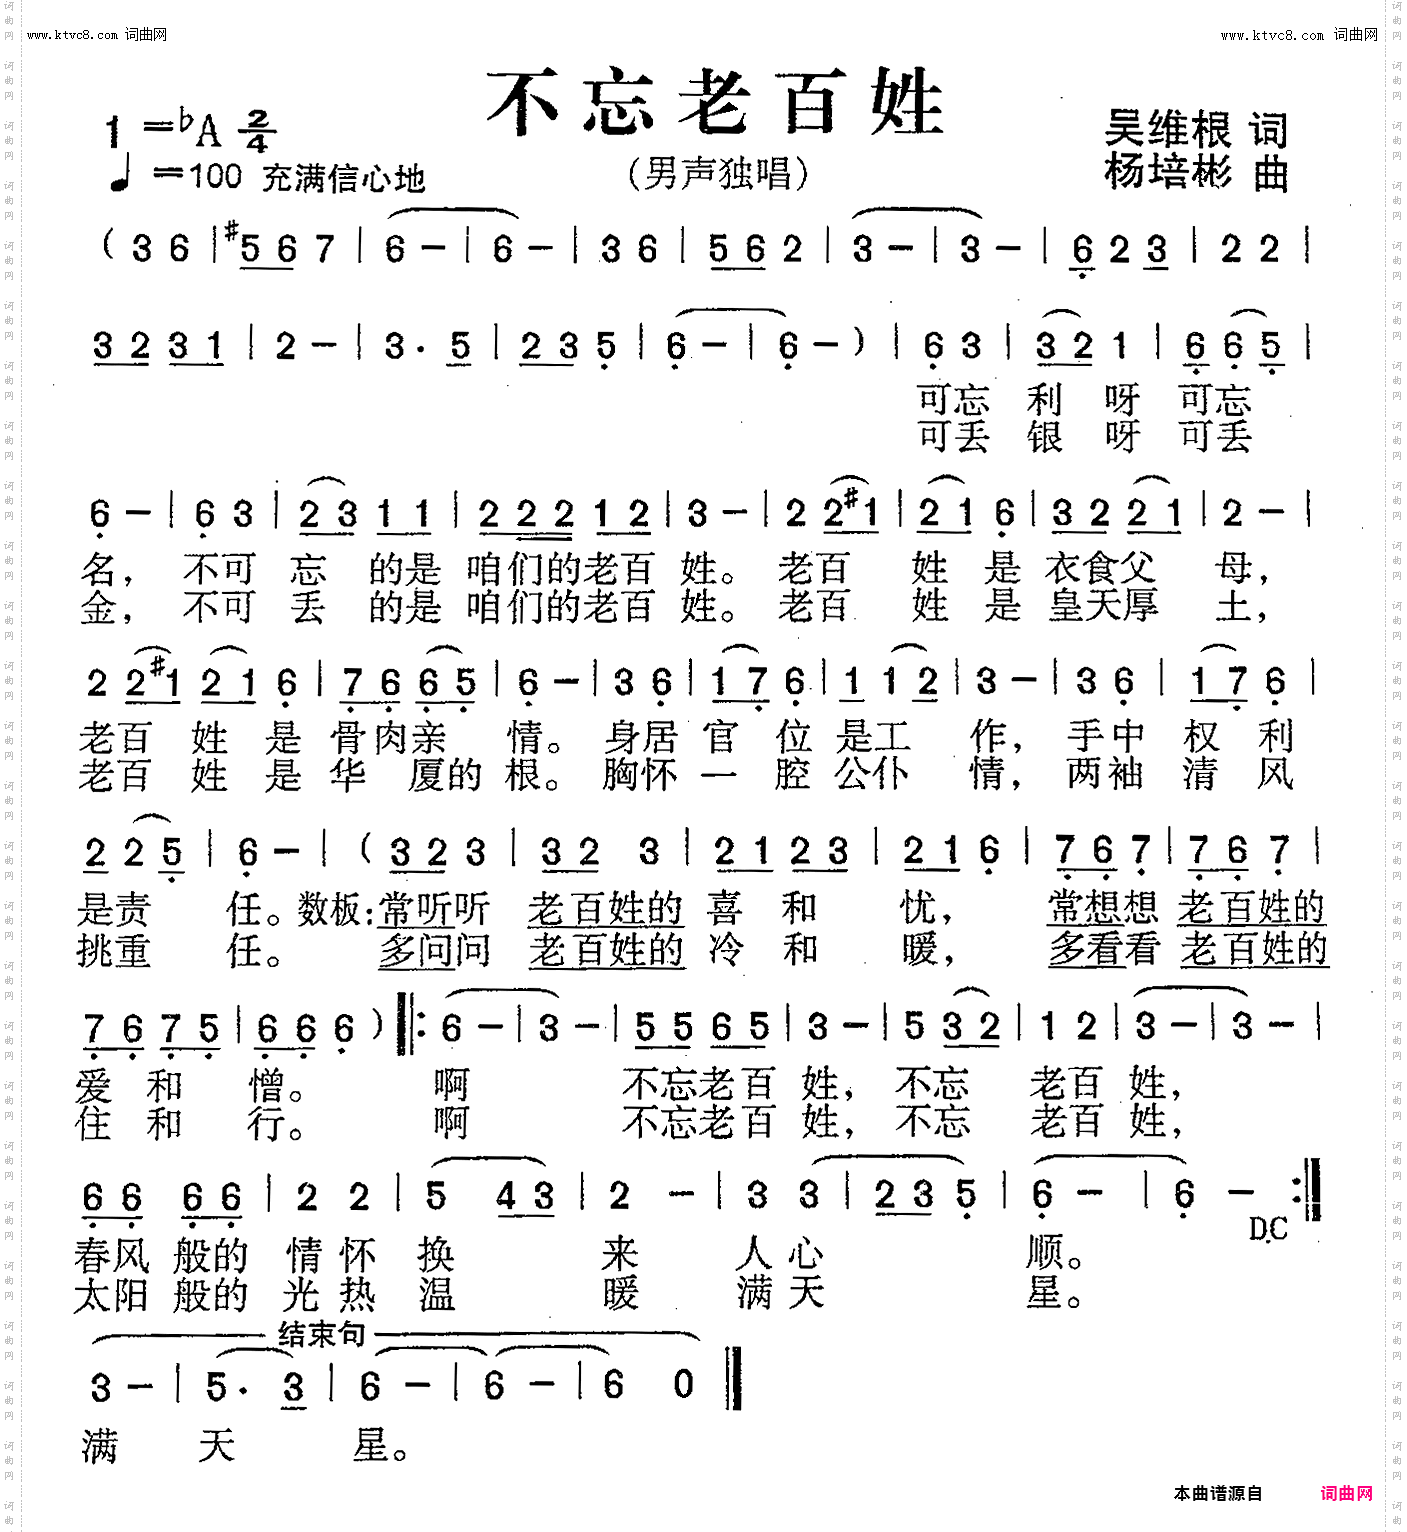 www.ktvc8.com 词曲网
www.ktvc8.com 词曲网
不忘老百姓
1=♭A 2/4
吴维根 词
♩=100 充满信心地
(男声独唱)
杨培彬 曲
( 3 6 | #5 6 7 | 6 - | 6 - | 3 6 | 5 6 2 | 3 - | 3 - | 6 2 3 | 2 2 |
3 2 3 1 | 2 - | 3 · 5 | 2 3 5 | 6 - | 6 - ) | 6 3 | 3 2 1 | 6 6 5 |
可忘 利 呀 可忘
可丢 银 呀 可丢
6 - | 6 3 | 2 3 1 1 | 2 2 2 1 2 | 3 - | 2 2 #1 | 2 1 6 | 3 2 2 1 | 2 - |
名，不可 忘 的是 咱们的老百 姓。老百 姓 是 衣食父 母，
金，不可 丢 的是 咱们的老百 姓。老百 姓 是 皇天厚 土，
2 2 #1 2 1 6 | 7 6 6 5 | 6 - | 3 6 | 1 7 6 | 1 1 2 | 3 - | 3 6 | 1 7 6 |
老百 姓 是 骨肉亲 情。身居 官 位 是工 作，手中 权 利
老百 姓 是 华 厦的 根。胸怀 一 腔 公仆 情，两袖 清 风
2 2 5 | 6 - | ( 3 2 3 | 3 2 3 | 2 1 2 3 | 2 1 6 | 7 6 7 | 7 6 7 |
是责 任。数板：常听听 老百姓的 喜 和 忧，常想想 老百姓的
挑重 任。 多问问 老百姓的 冷 和 暖，多看看 老百姓的
7 6 7 5 | 6 6 6 ) |: 6 - | 3 - | 5 5 6 5 | 3 - | 5 3 2 | 1 2 | 3 - | 3 - |
爱 和 憎。 啊 不忘老百 姓，不忘 老百 姓，
住 和 行。 啊 不忘老百 姓，不忘 老百 姓，
6 6 6 6 | 2 2 | 5 4 3 | 2 - | 3 3 | 2 3 5 | 6 - | 6 - :|
DC
春风 般的 情 怀 换 来 人 心 顺。
太阳 般的 光 热 温 暖 满 天 星。
结束句
3 - | 5 · 3 | 6 - | 6 - | 6 0 ‖
满 天 星。
本曲谱源自 词曲网